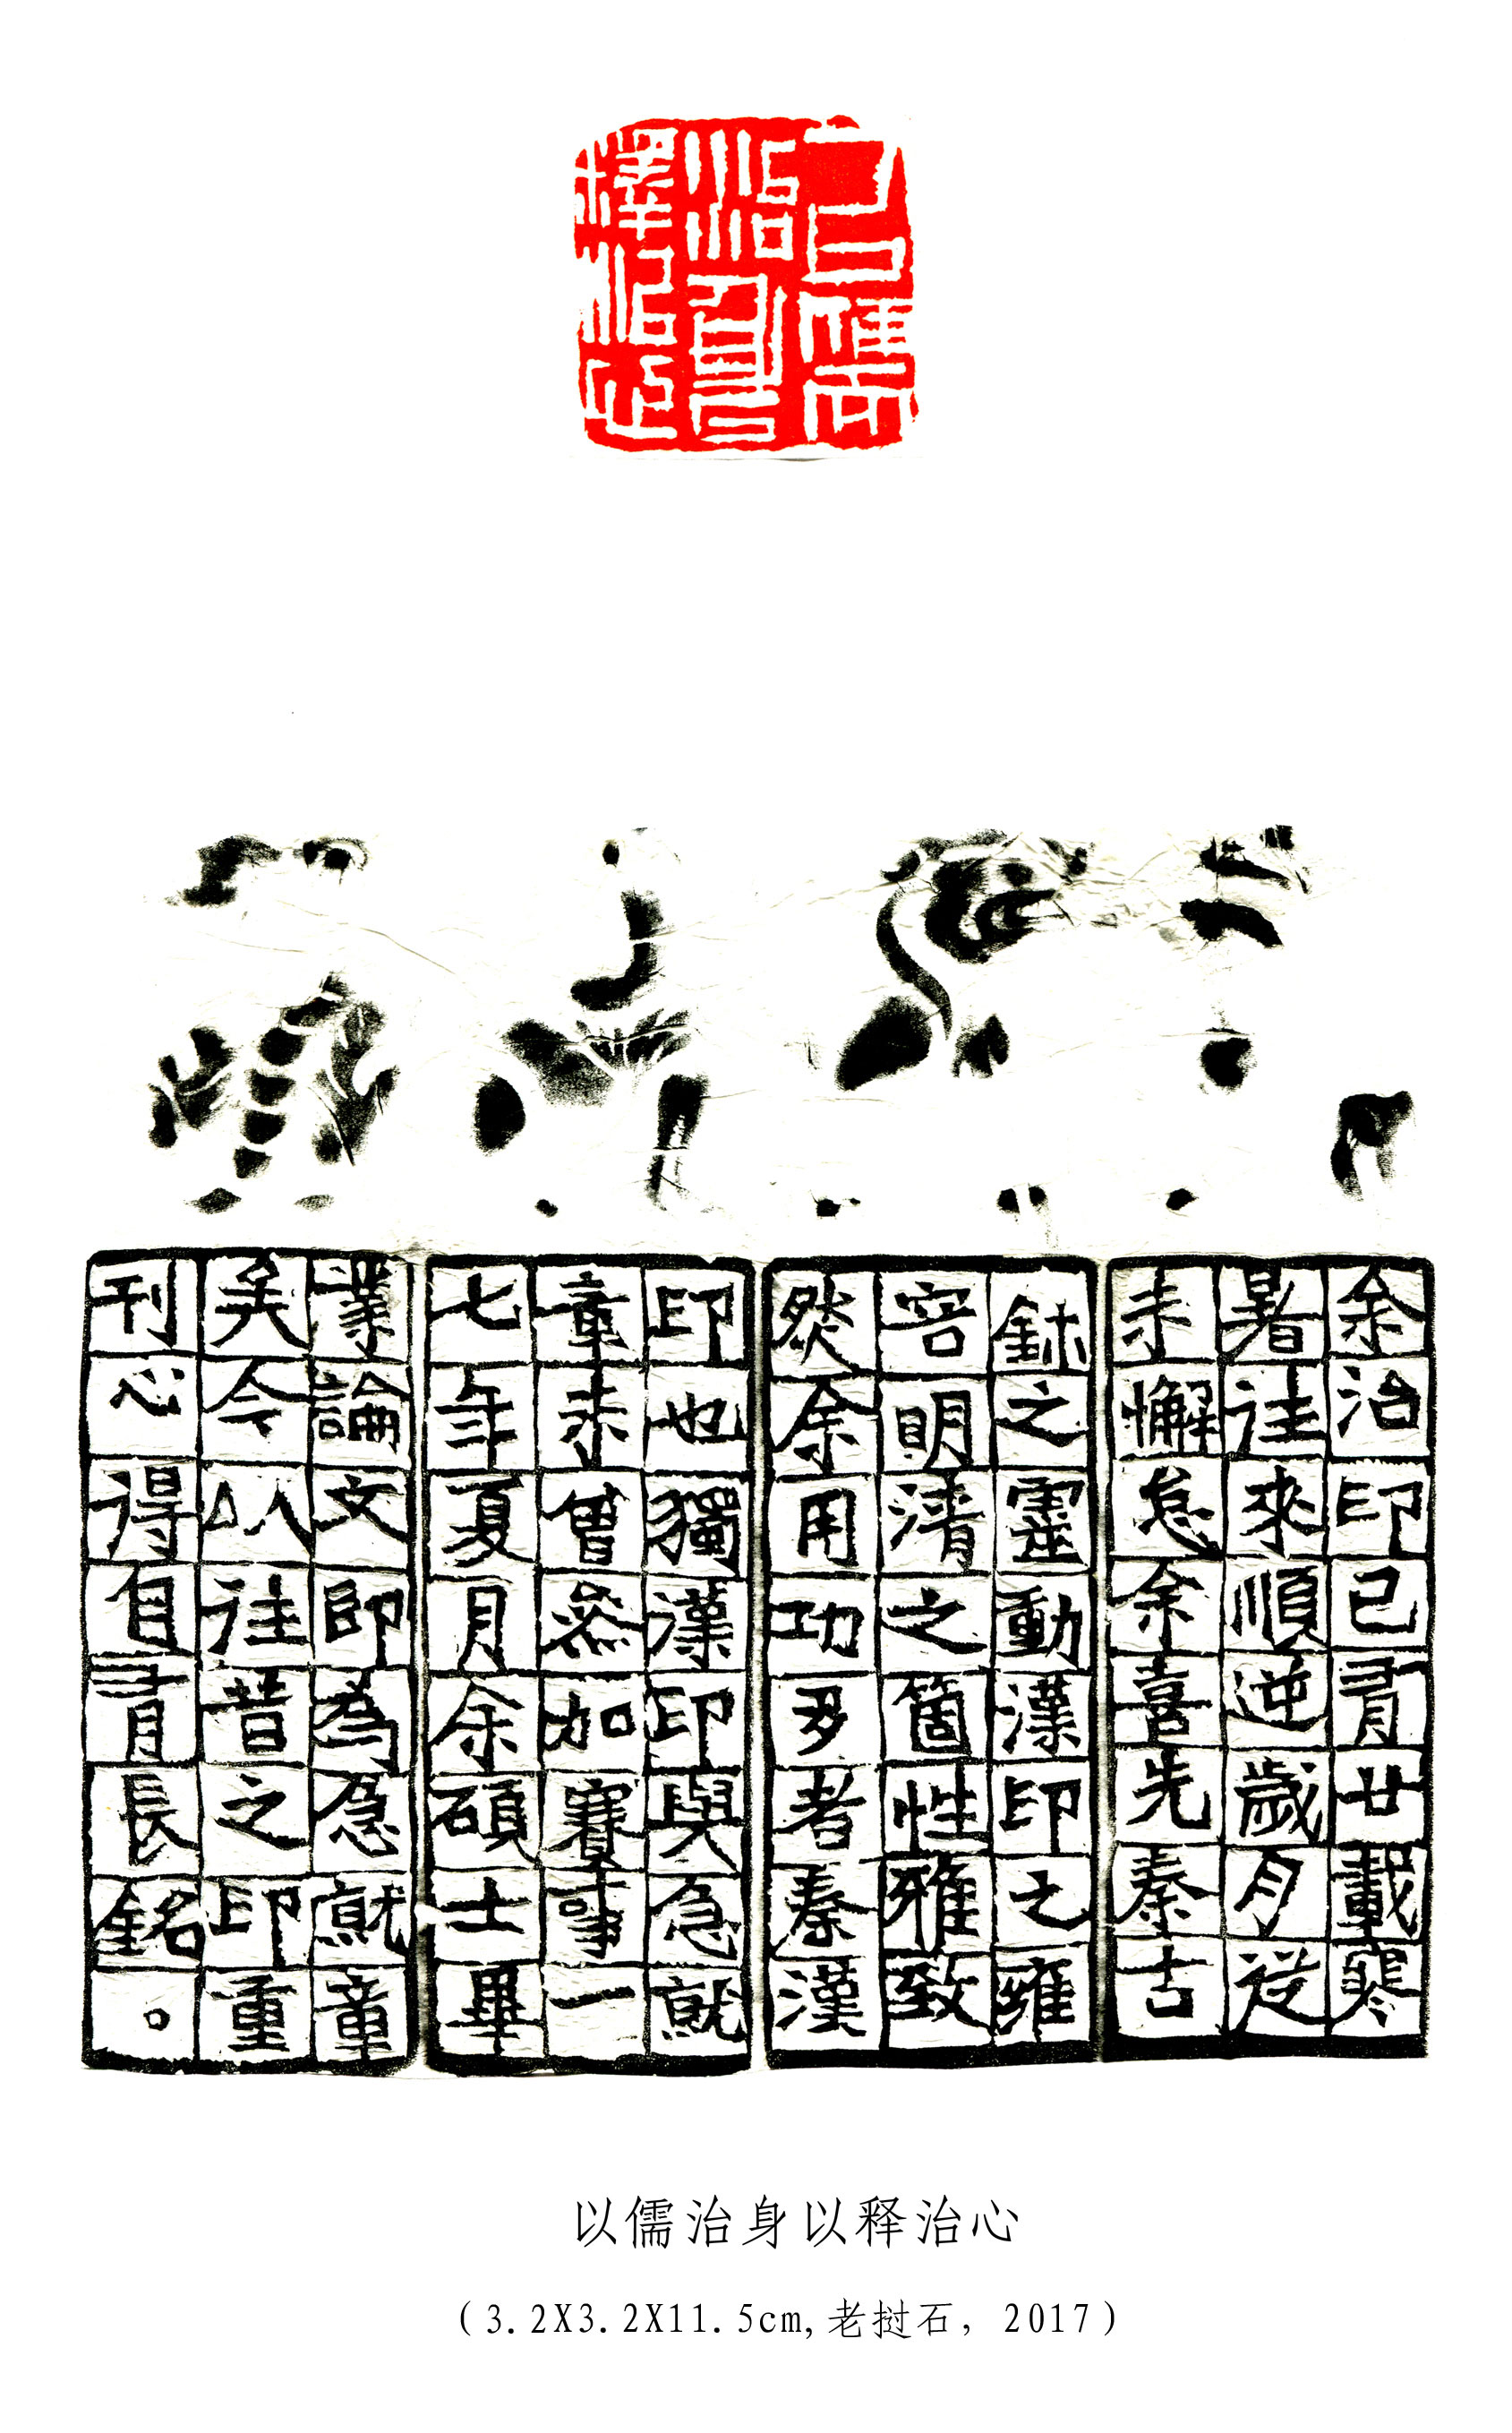 以儒
治身以
釋治心
余治印已有廿載寒
暑往來順逆歲月從
未懈怠余喜先秦古
鉥之靈動漢印之雍
容明清之箇性雅致
然余用功多者秦漢
印也獨漢印與急就
章未曾參加賽事一
七年夏月余碩士畢
業論文即為急就章
矣今以往昔之印重
刊心得自有長銘。
以儒治身以释治心
（3.2X3.2X11.5cm,老挝石，2017）